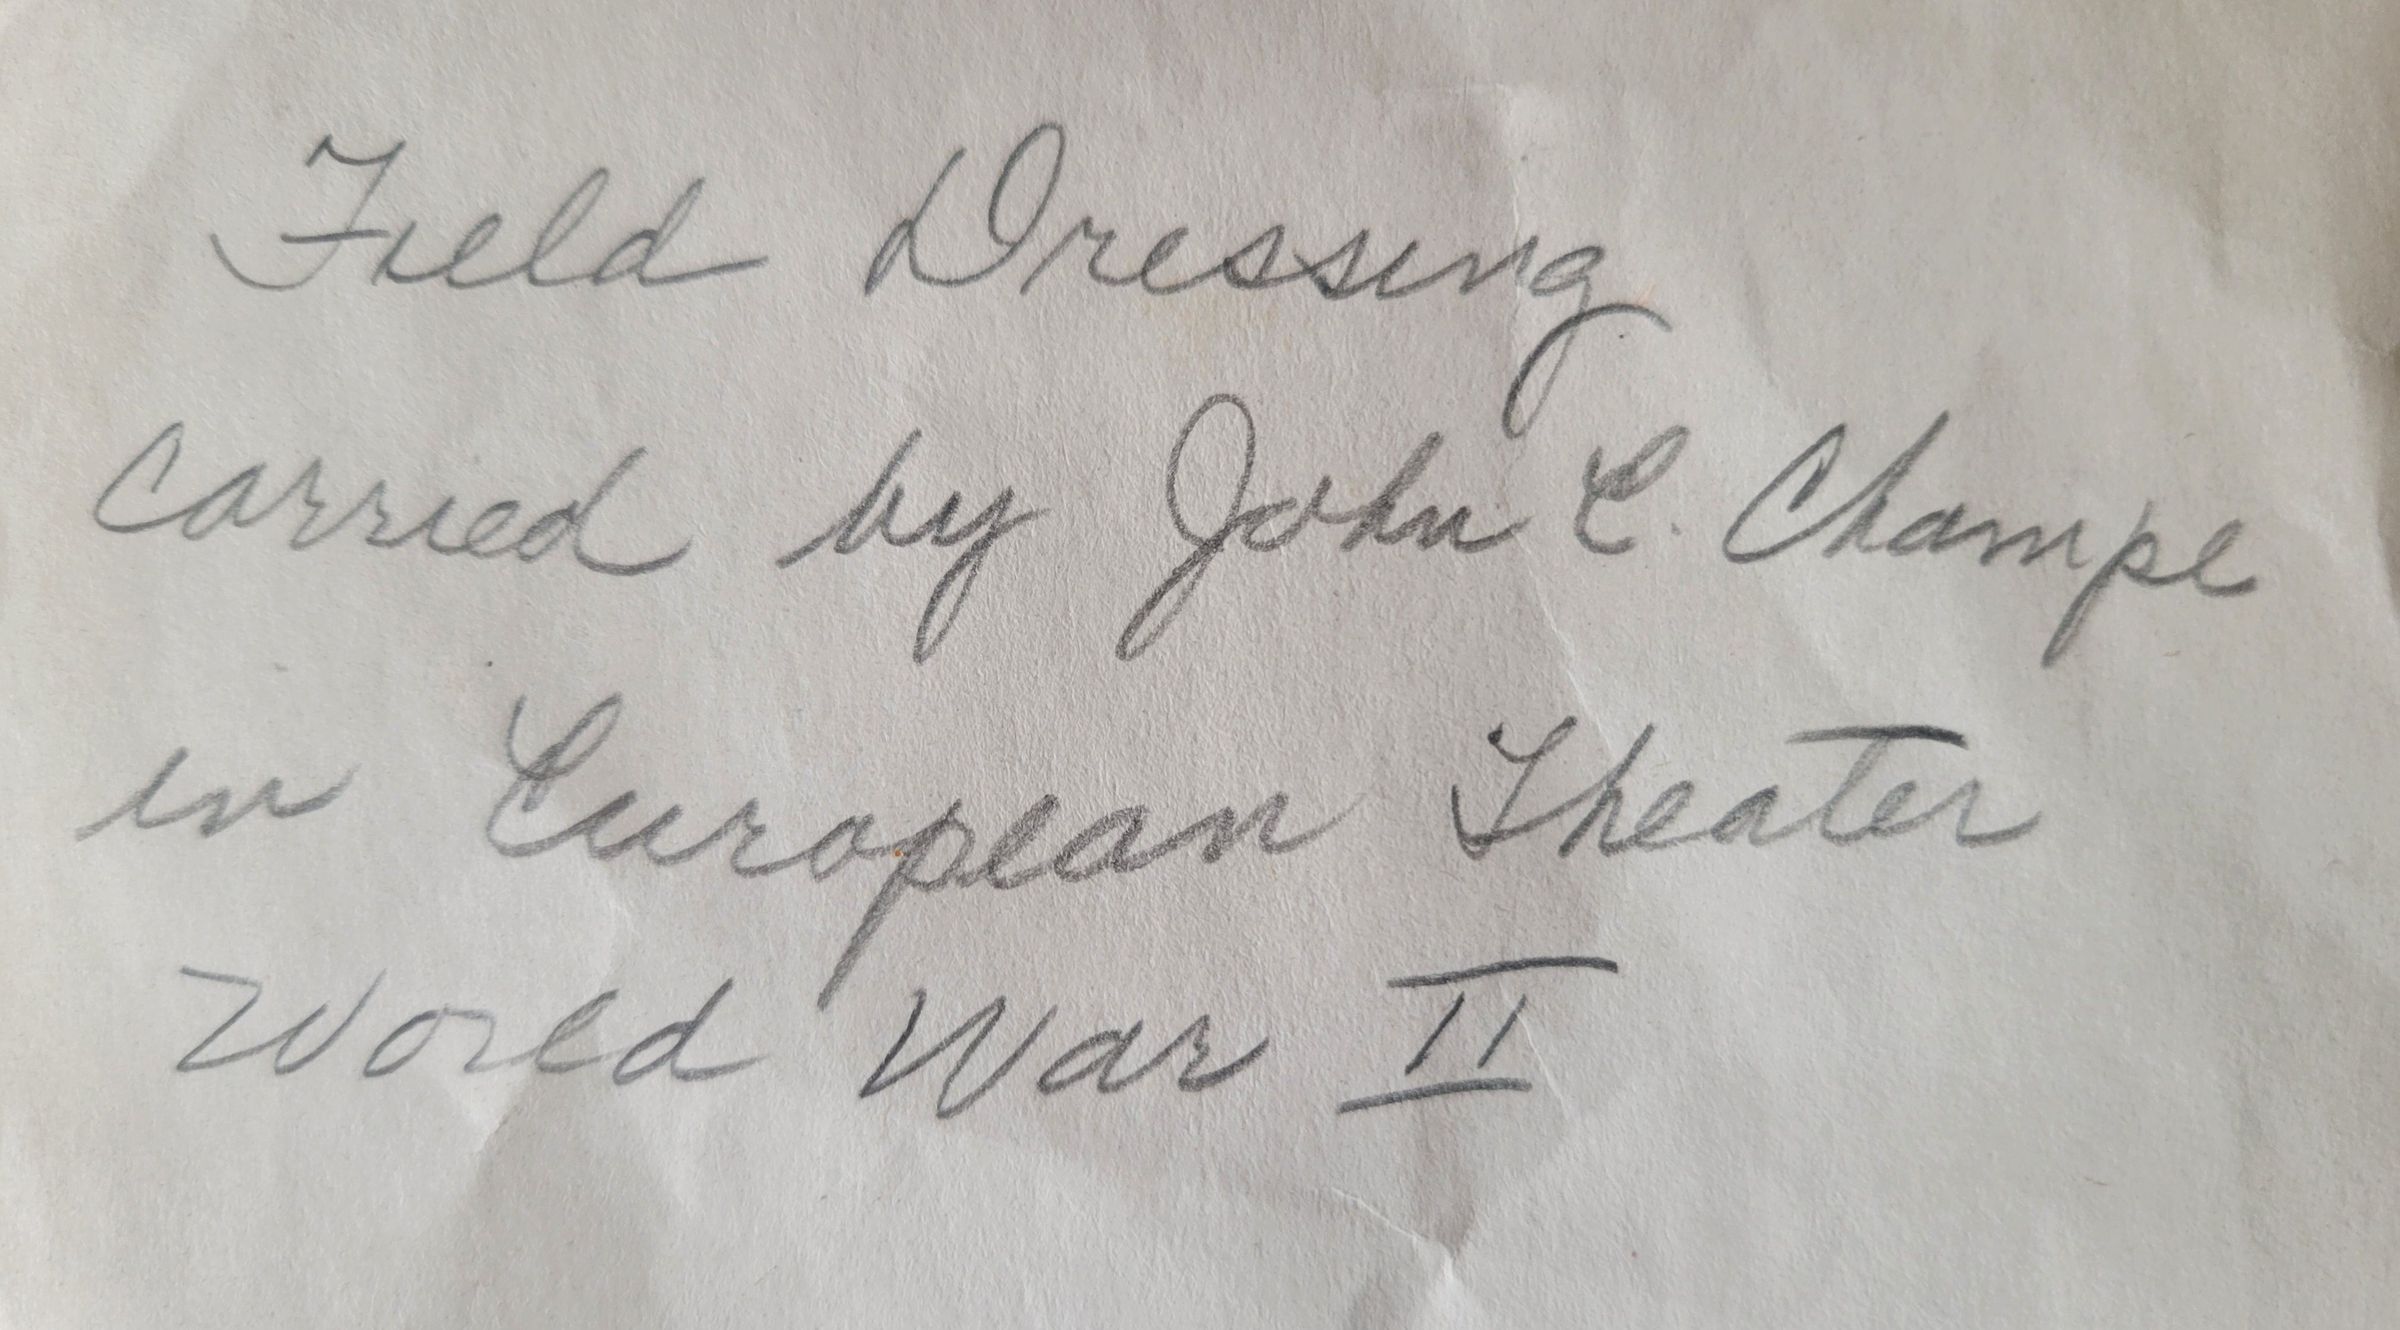 Field Dressing
Carried by John E. Champe
in European Theater
World War II